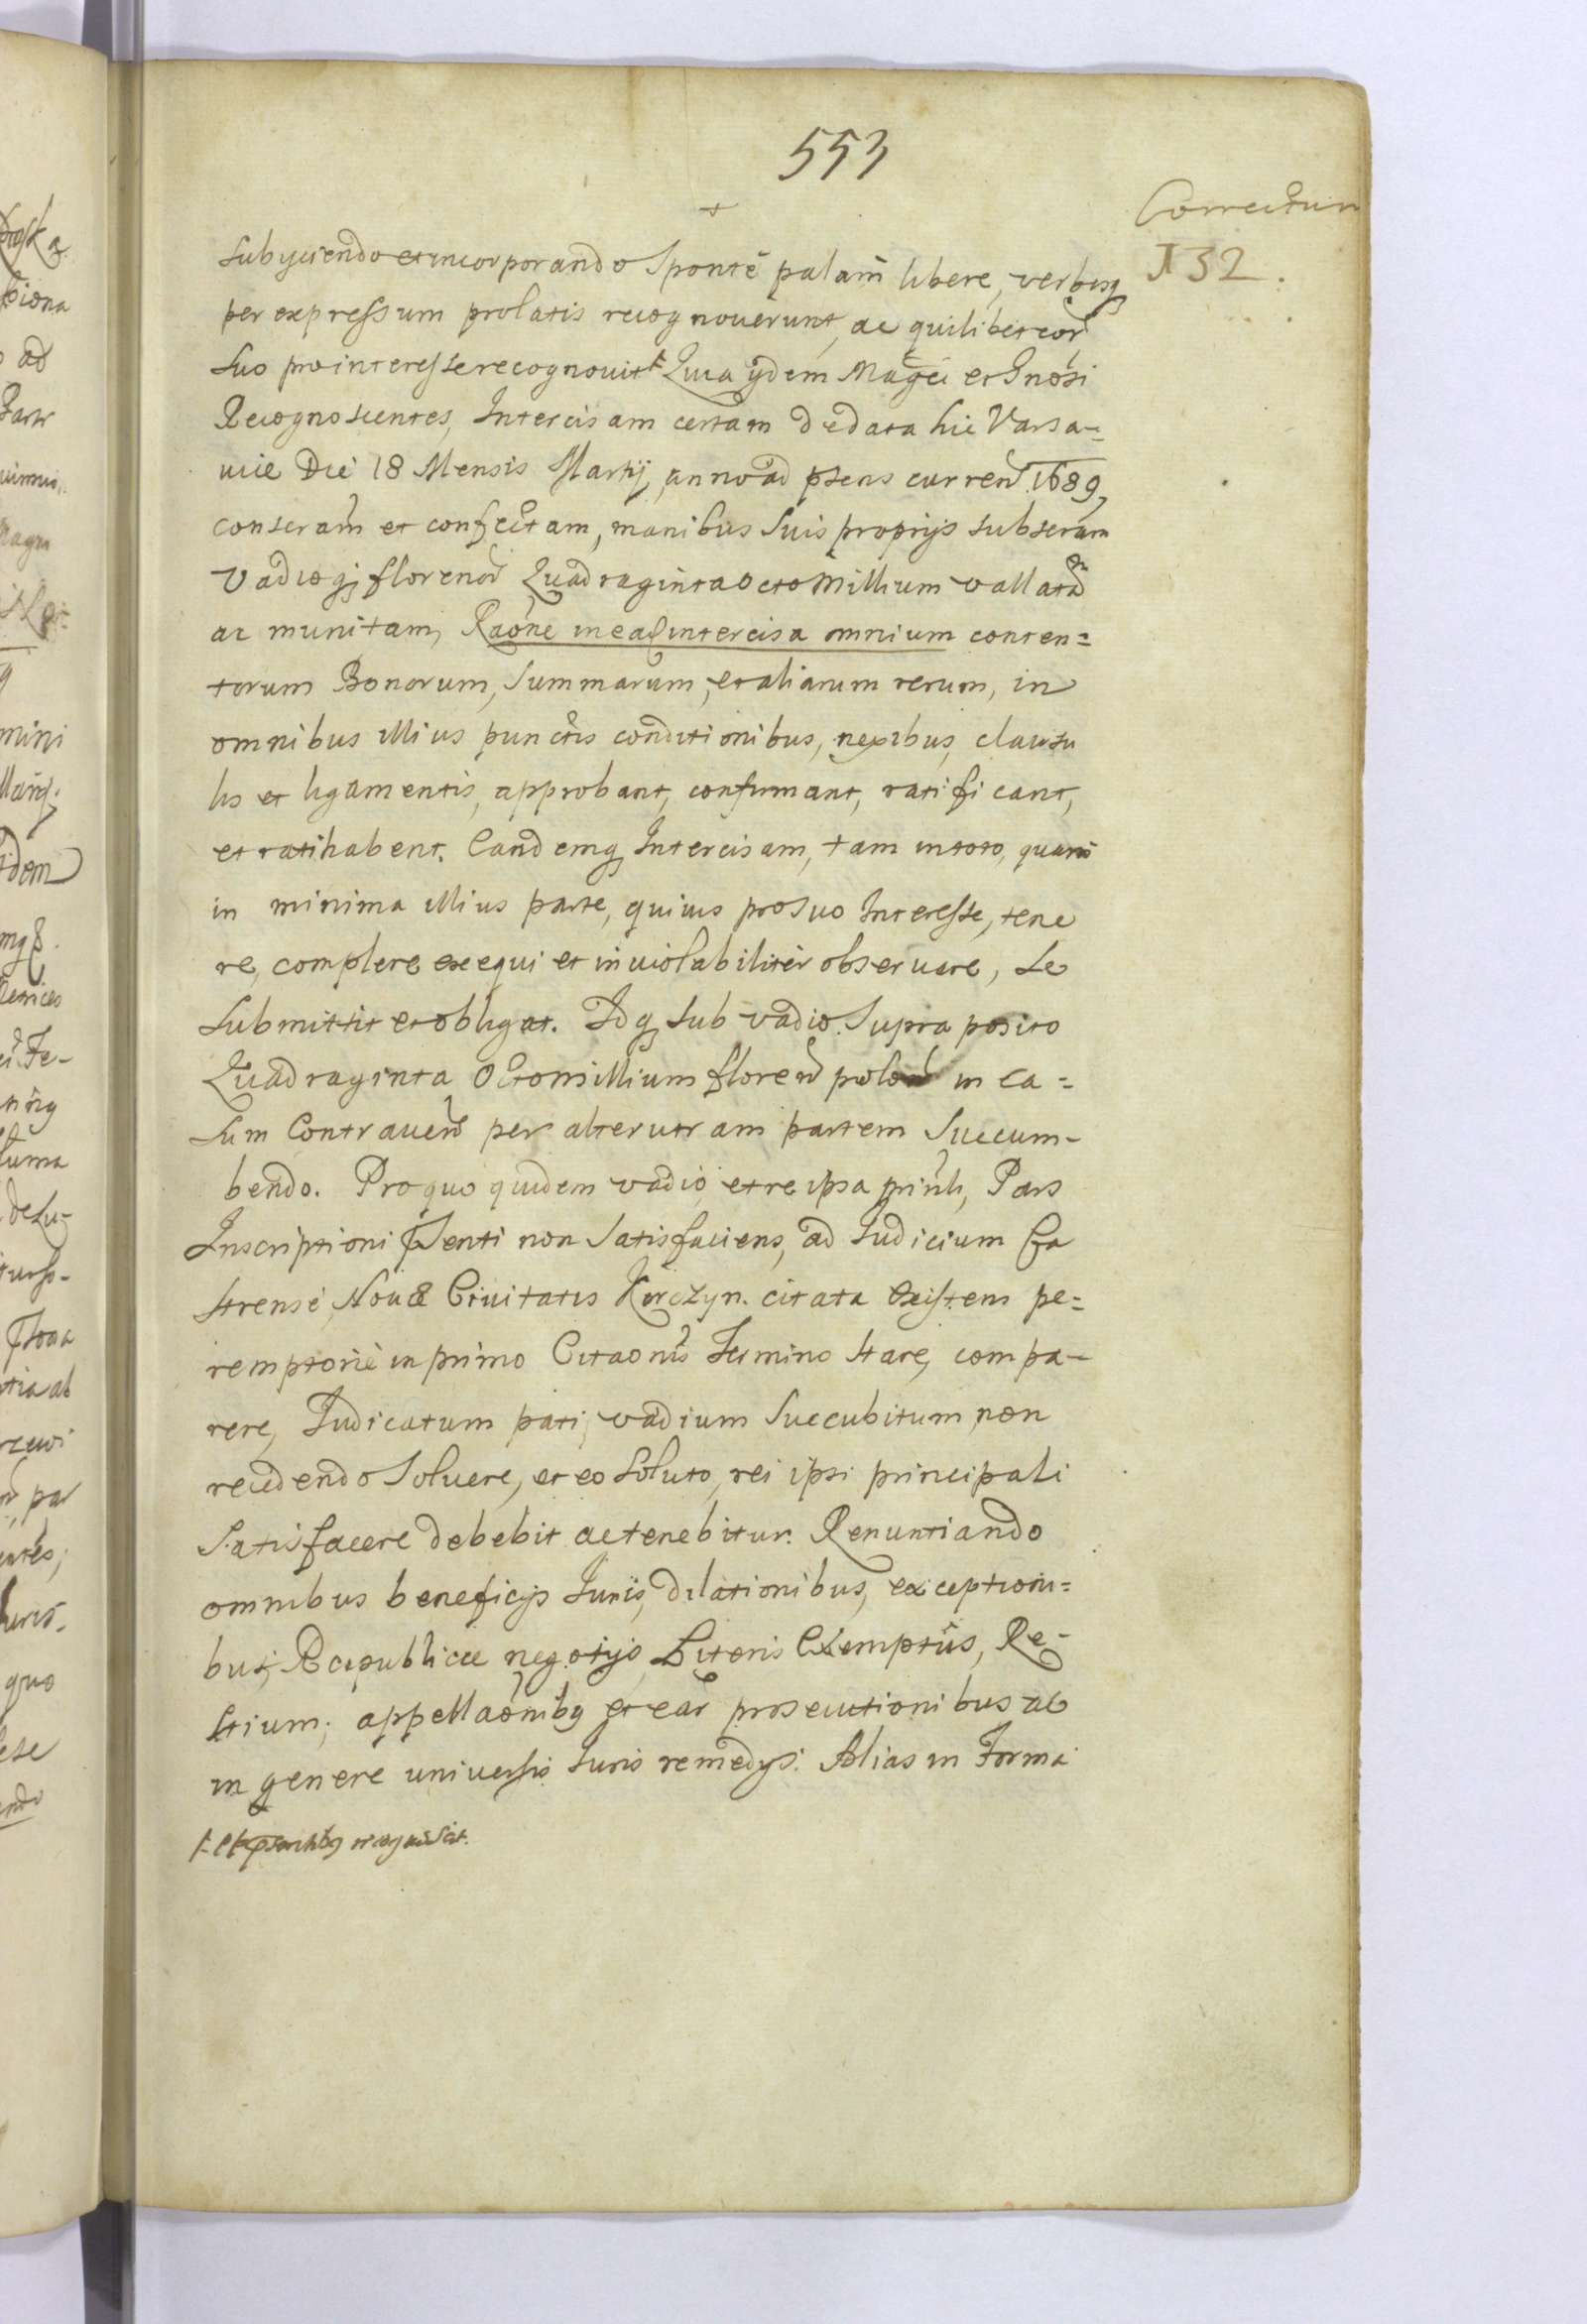 553
+
Correctum
N 32.
subyciendo et incorporando Sponte palam libere, verbisq
per expressum prolatis recognouerunt, ac quilibet eor
suo pro interesse recognouit + Quia ydem Magci et Gnosi
Recognoscentes, Intercisam certam de data hic Varsa=
uiæ Die 18 Mensis Martij anno ad pstens curren 1689,
conscram et confectam, manibus suis proprijs subscram
vadioq florenor Quadraginta octo Millium vallatã
ac munitam, Raone inea intercisa omnium conten=
torum Bonorum, Summarum, et aliarum rerum, in
omnibus illius punctis conditionibus, nexibus, clausu
lis et ligamentis, approbant, confirmant, ratificant,
et ratihabent. Eandemq Intercisam, tam in toto, quam
in minima illius parte, quiuis pro suo Interesse, tene
re, complere exequi et inuiolabiliter obseruare, se
submittit et obligat. Idq sub vadio Supra posito
Quadraginta Octo millium floren polon in ca=
sum Contrauen per alterutram partem Succum-
bendo. Pro quo quidem vadio, et re ipsa prinli, Pars
Inscriptioni psenti non Satisfaciens, ad Iudicium Ca
strense, Nouæ Ciuitatis Korczyn. citata existens pe=
remptorie in primo Citaonis Termino stare, compa-
rere, Iudicatum pati, vadium Succubitum non
recedendo Soluere, et eo Soluto, rei ipsi principali
Satisfacere debebit ac tenebitur. Renuntiando
omnibus beneficijs Iuris, dilationibus, exceptioni=
bus, Reipublicæ negotijs Literis Exemptus, Re-
stium, appellaonibq et ear prosecutionibus ac
in genere universis Iuris remedys. Alias in Forma